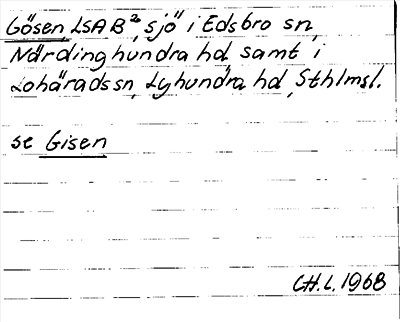 Gösen, LSA B², sjö i Edsbro sn,
Närdinghundra hd samt i
Lohäradssn, Lyhundra hd, Sthlmsl.
se Gisen
CH.L. 1968